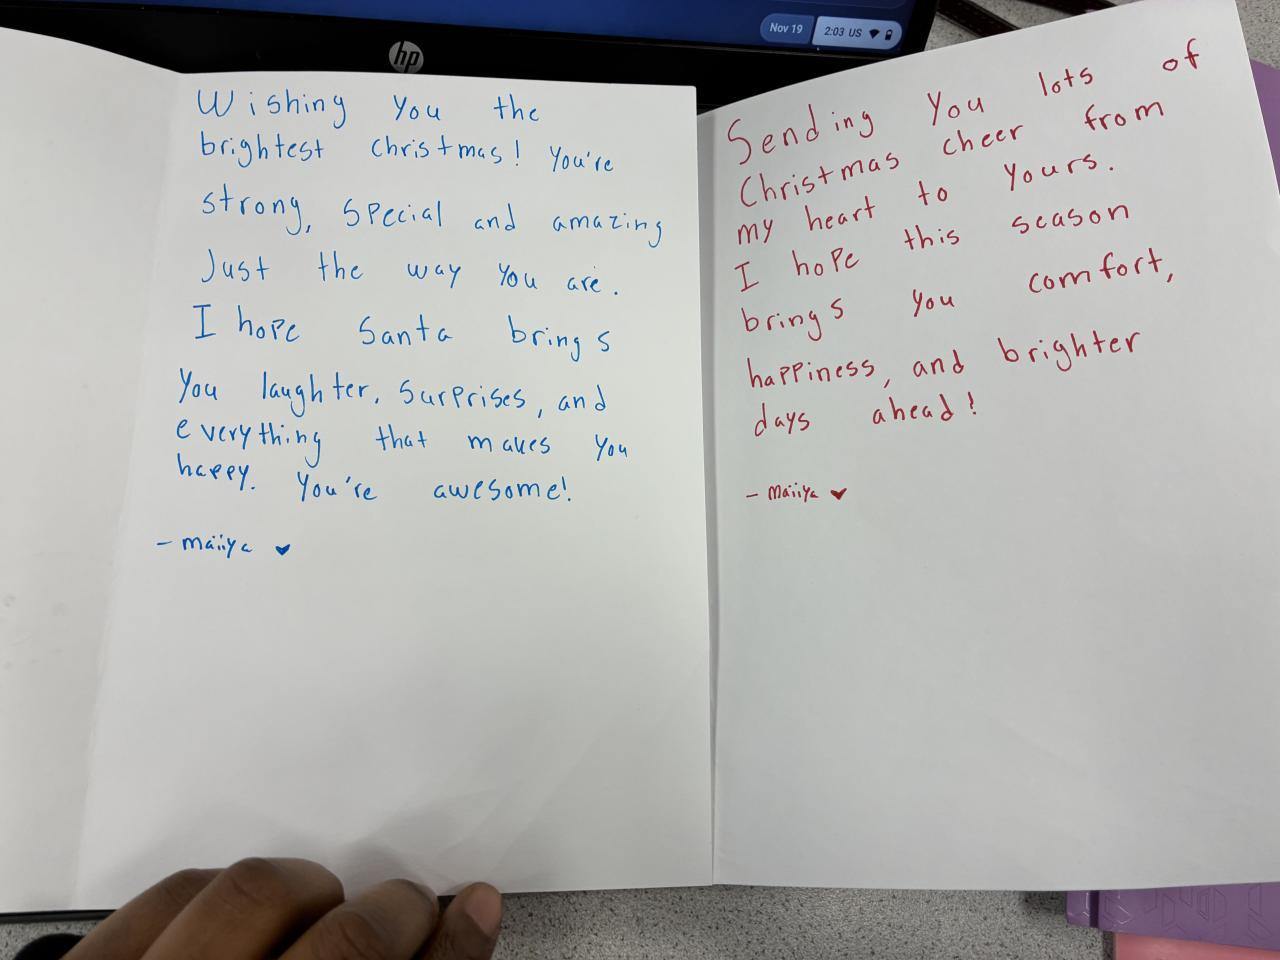 Nov 19
2:03 US
hp
Wishing you the
brightest christmas! You're
strong, special and amazing
Just the way you are.
I hope Santa brings
You laughter, surprises, and
everything that makes you
happy. You're awesome!
- maiiya ♥
Sending you lots of
Christmas cheer from
my heart to yours.
I hope this season
brings you comfort,
happiness, and brighter
days ahead!
- maiiya ♥